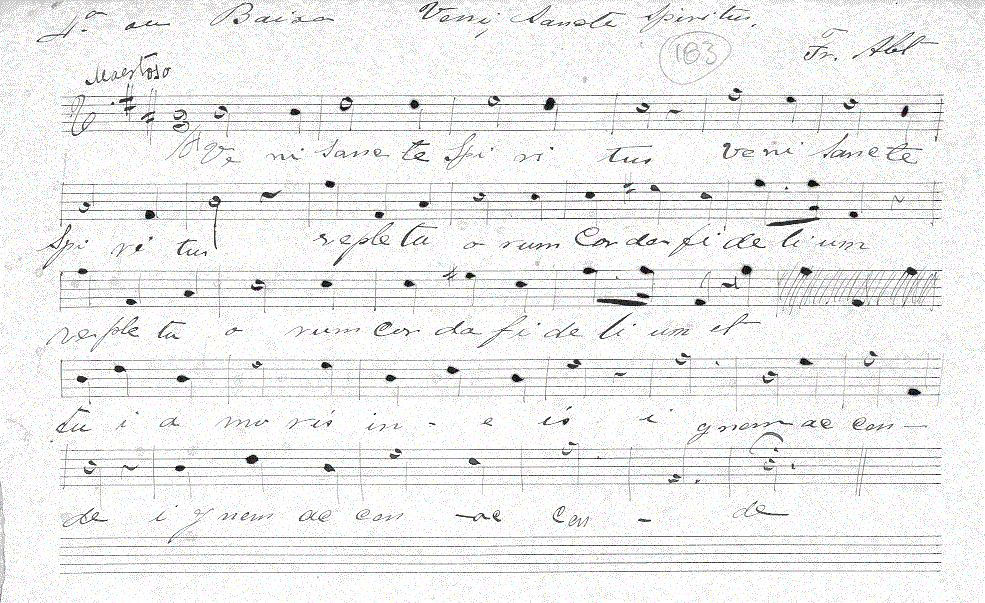 4ª ou Baixa Veni, Sancte Spiritus.
183
Fr. Abt
Maestoso
3
Ve ni sanc te Spi ri tus veni sancte
Spi ri tus reple tu o rum Cor da fi de li um
reple tu o rum cor da fi de li um et
tu i a mo ris in - e is i gnem ac cen -
de i gnem ac cen - ac cen - de